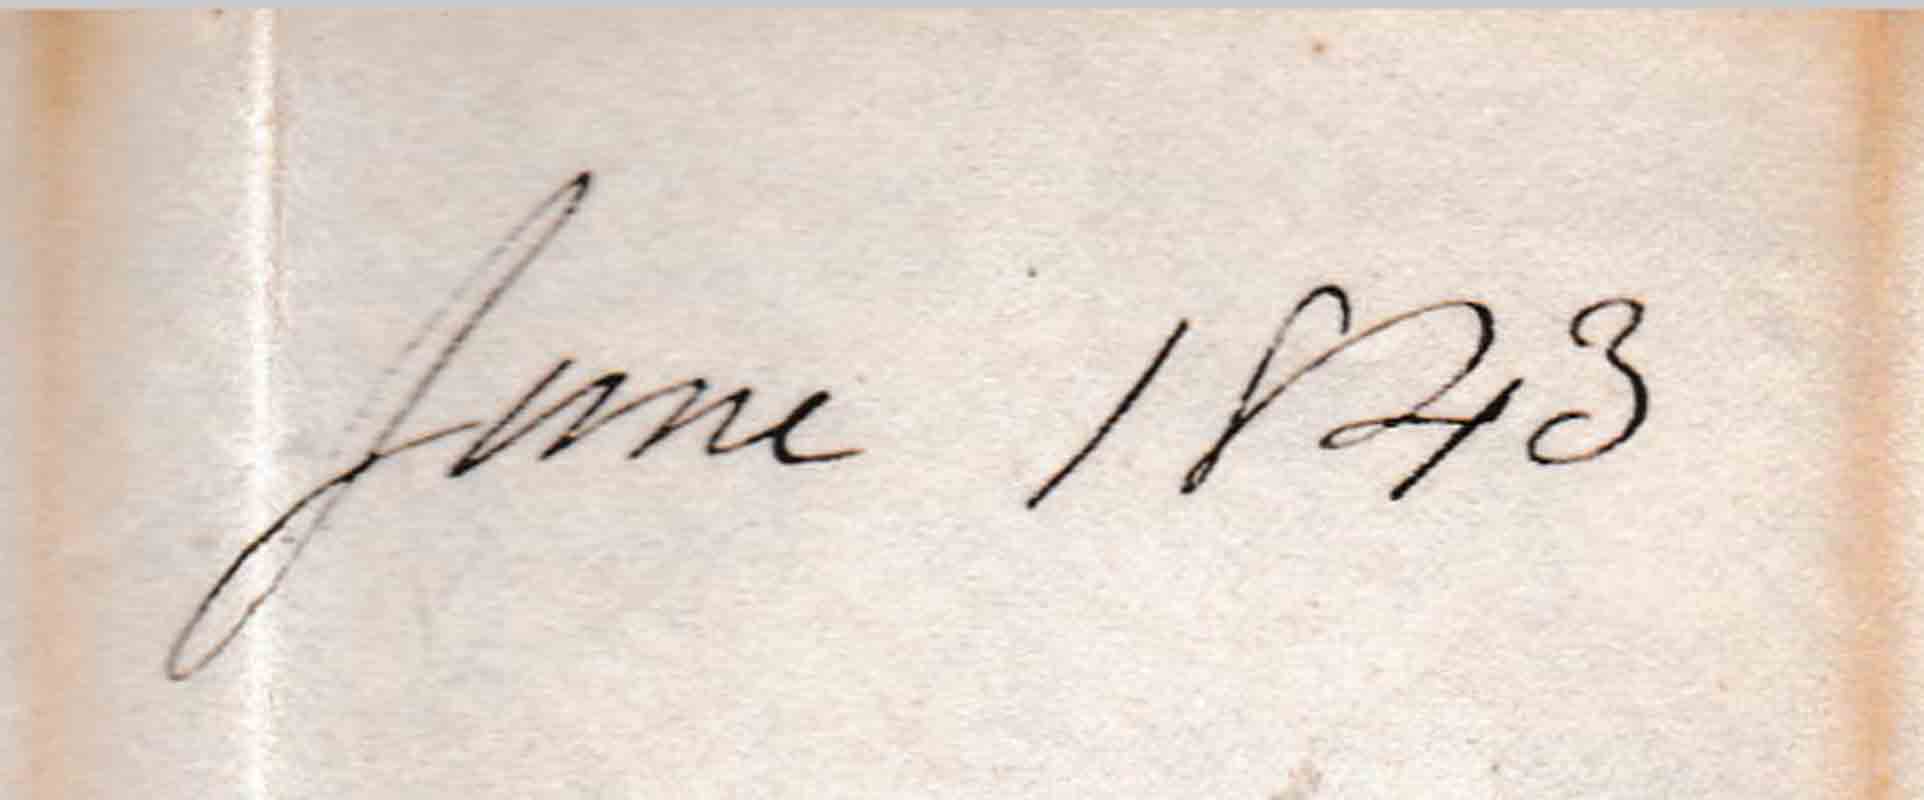 June 1843